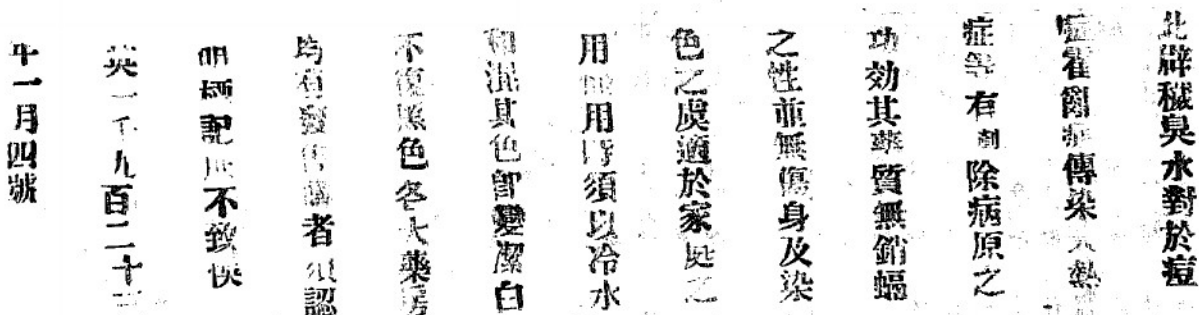 此辟穢臭水對於痘
症霍亂症傳染大熱
症等有剷除病原之
功効其藥質無銷蝕
之性並無傷身及染
色之虞適於家庭之
用 用時須以冷水
和混其色卽變潔白
不復黑色各大藥房
均有發售購者須認
明 記 不致悞
英一千九百二十
年一月四號